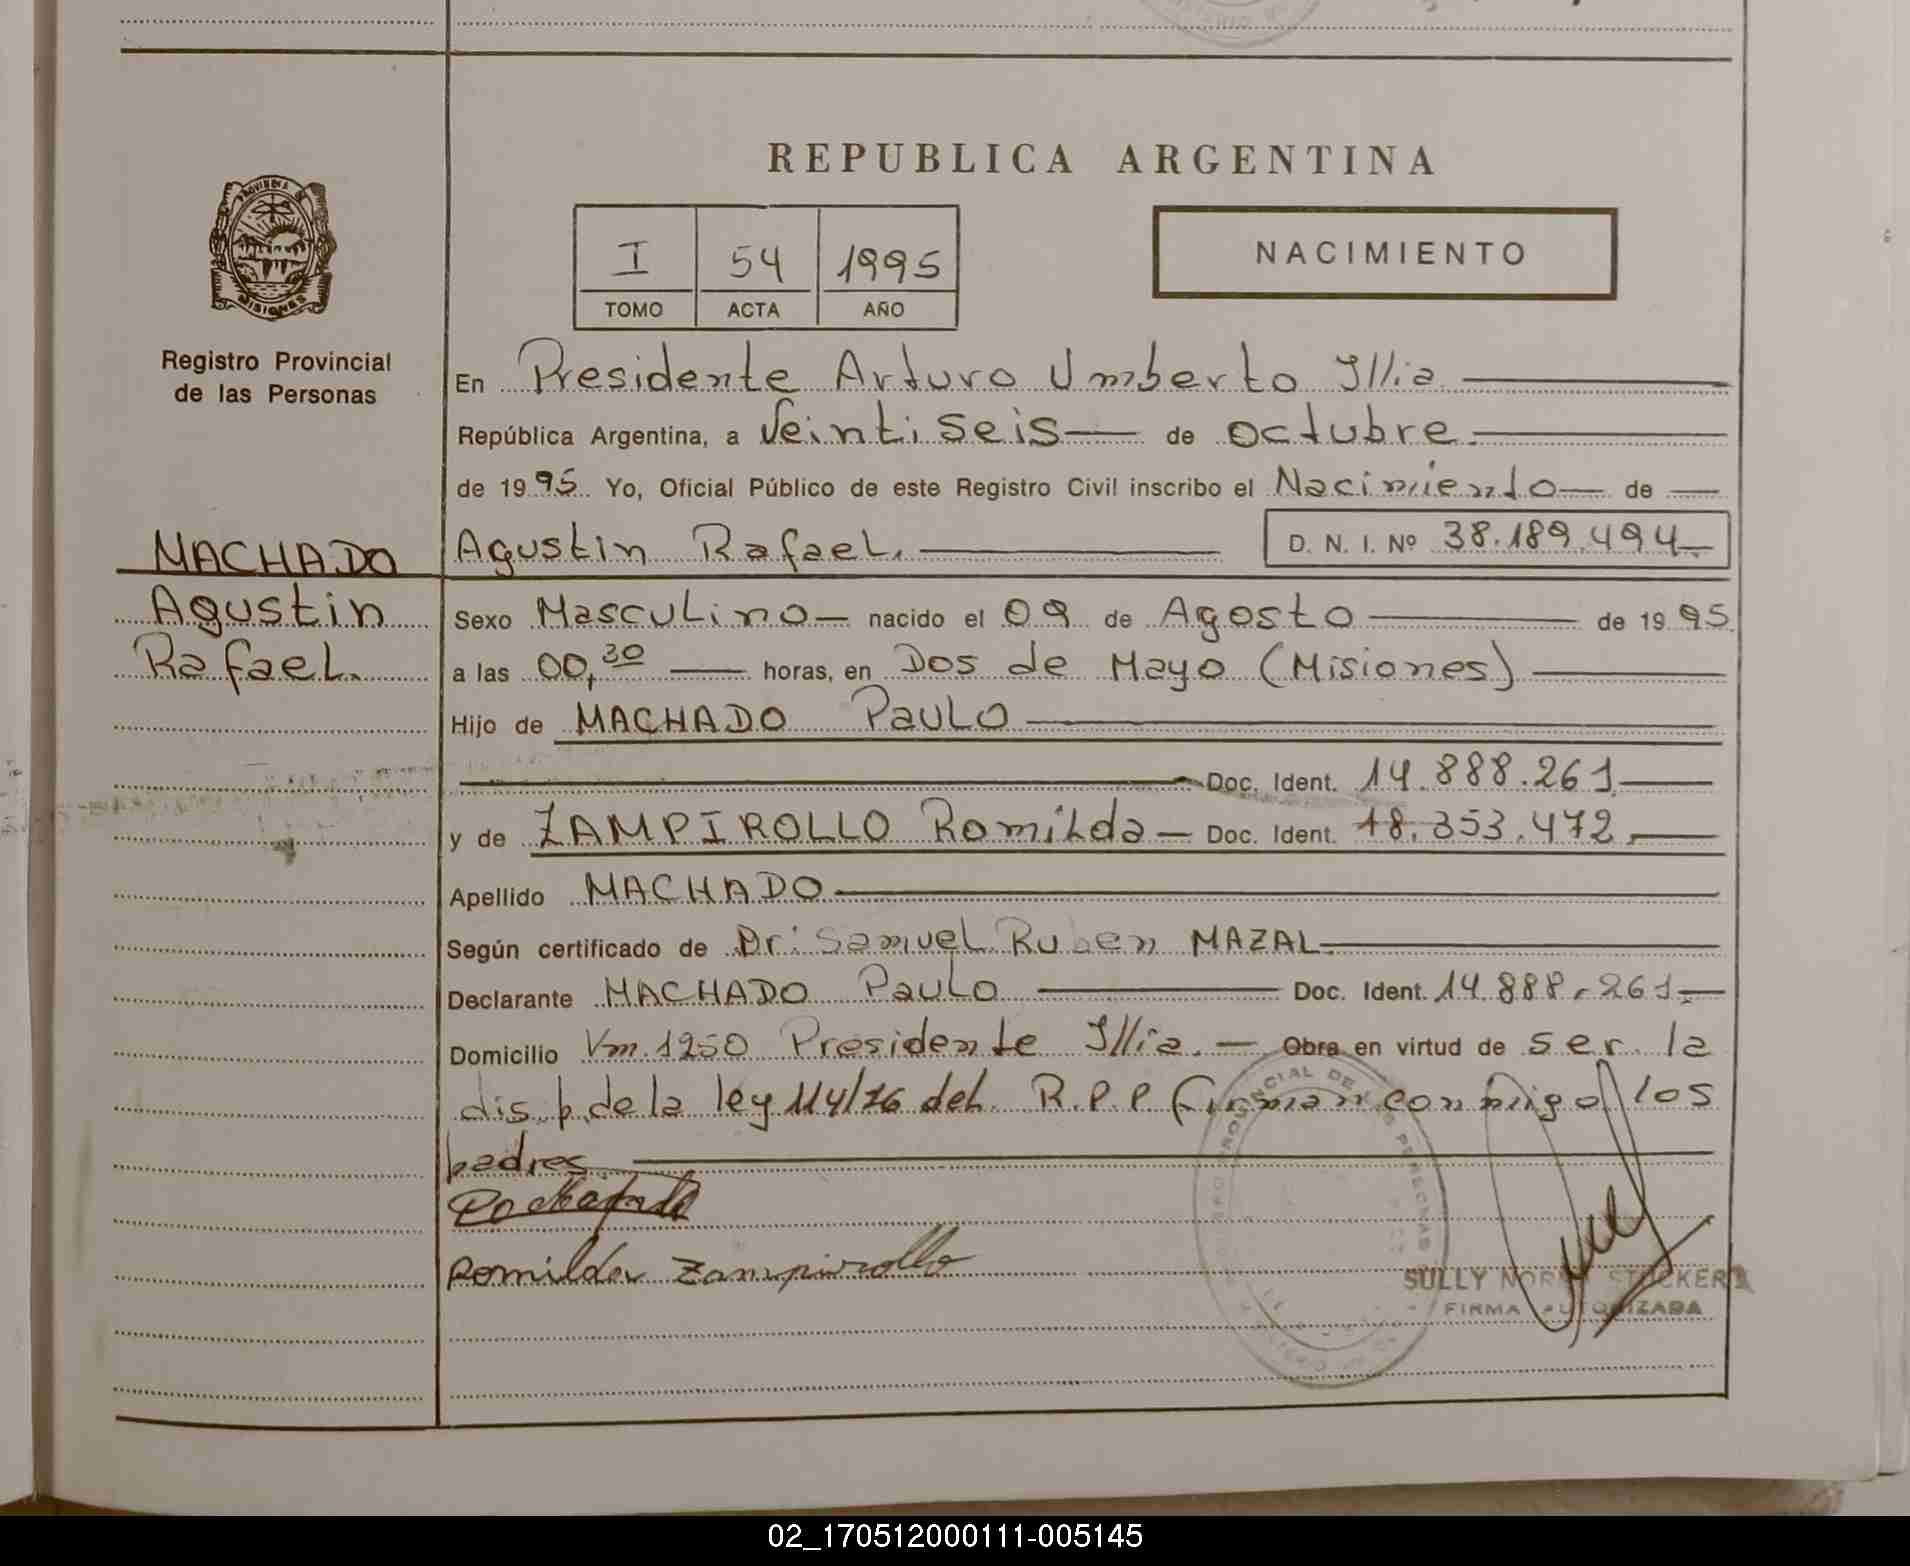 REPUBLICA ARGENTINA
PROVINCIA DE
MISIONES
Registro Provincial
de las Personas
I 54 1995
TOMO ACTA AÑO
NACIMIENTO
En Presidente Arturo Umberto Illia
República Argentina, a Veintiseis de octubre.
de 1995. Yo, Oficial Público de este Registro Civil inscribo el Nacimiento de
MACHADO
Agustin
Rafael.
Agustin Rafael. D. N. I. Nº 38.189.494
Sexo Masculino nacido el 09 de Agosto de 1995
a las 00,30 horas, en Dos de Mayo (Misiones)
Hijo de MACHADO Paulo
Doc. Ident. 14.888.261
y de ZAMPIROLLO Romilda Doc. Ident. 18.353.472
Apellido MACHADO
Según certificado de Dr: Samuel Ruben MAZAL
Declarante MACHADO Paulo Doc. Ident. 14.888.261
Domicilio Km. 1250 Presidente Illia. Obra en virtud de ser la
dis. p. de la ley 114/76 del R.P.P firman conmigo los
padres
Romilda Zampirollo
SULLY NORMA STOCKER
FIRMA AUTORIZADA
02_170512000111-005145